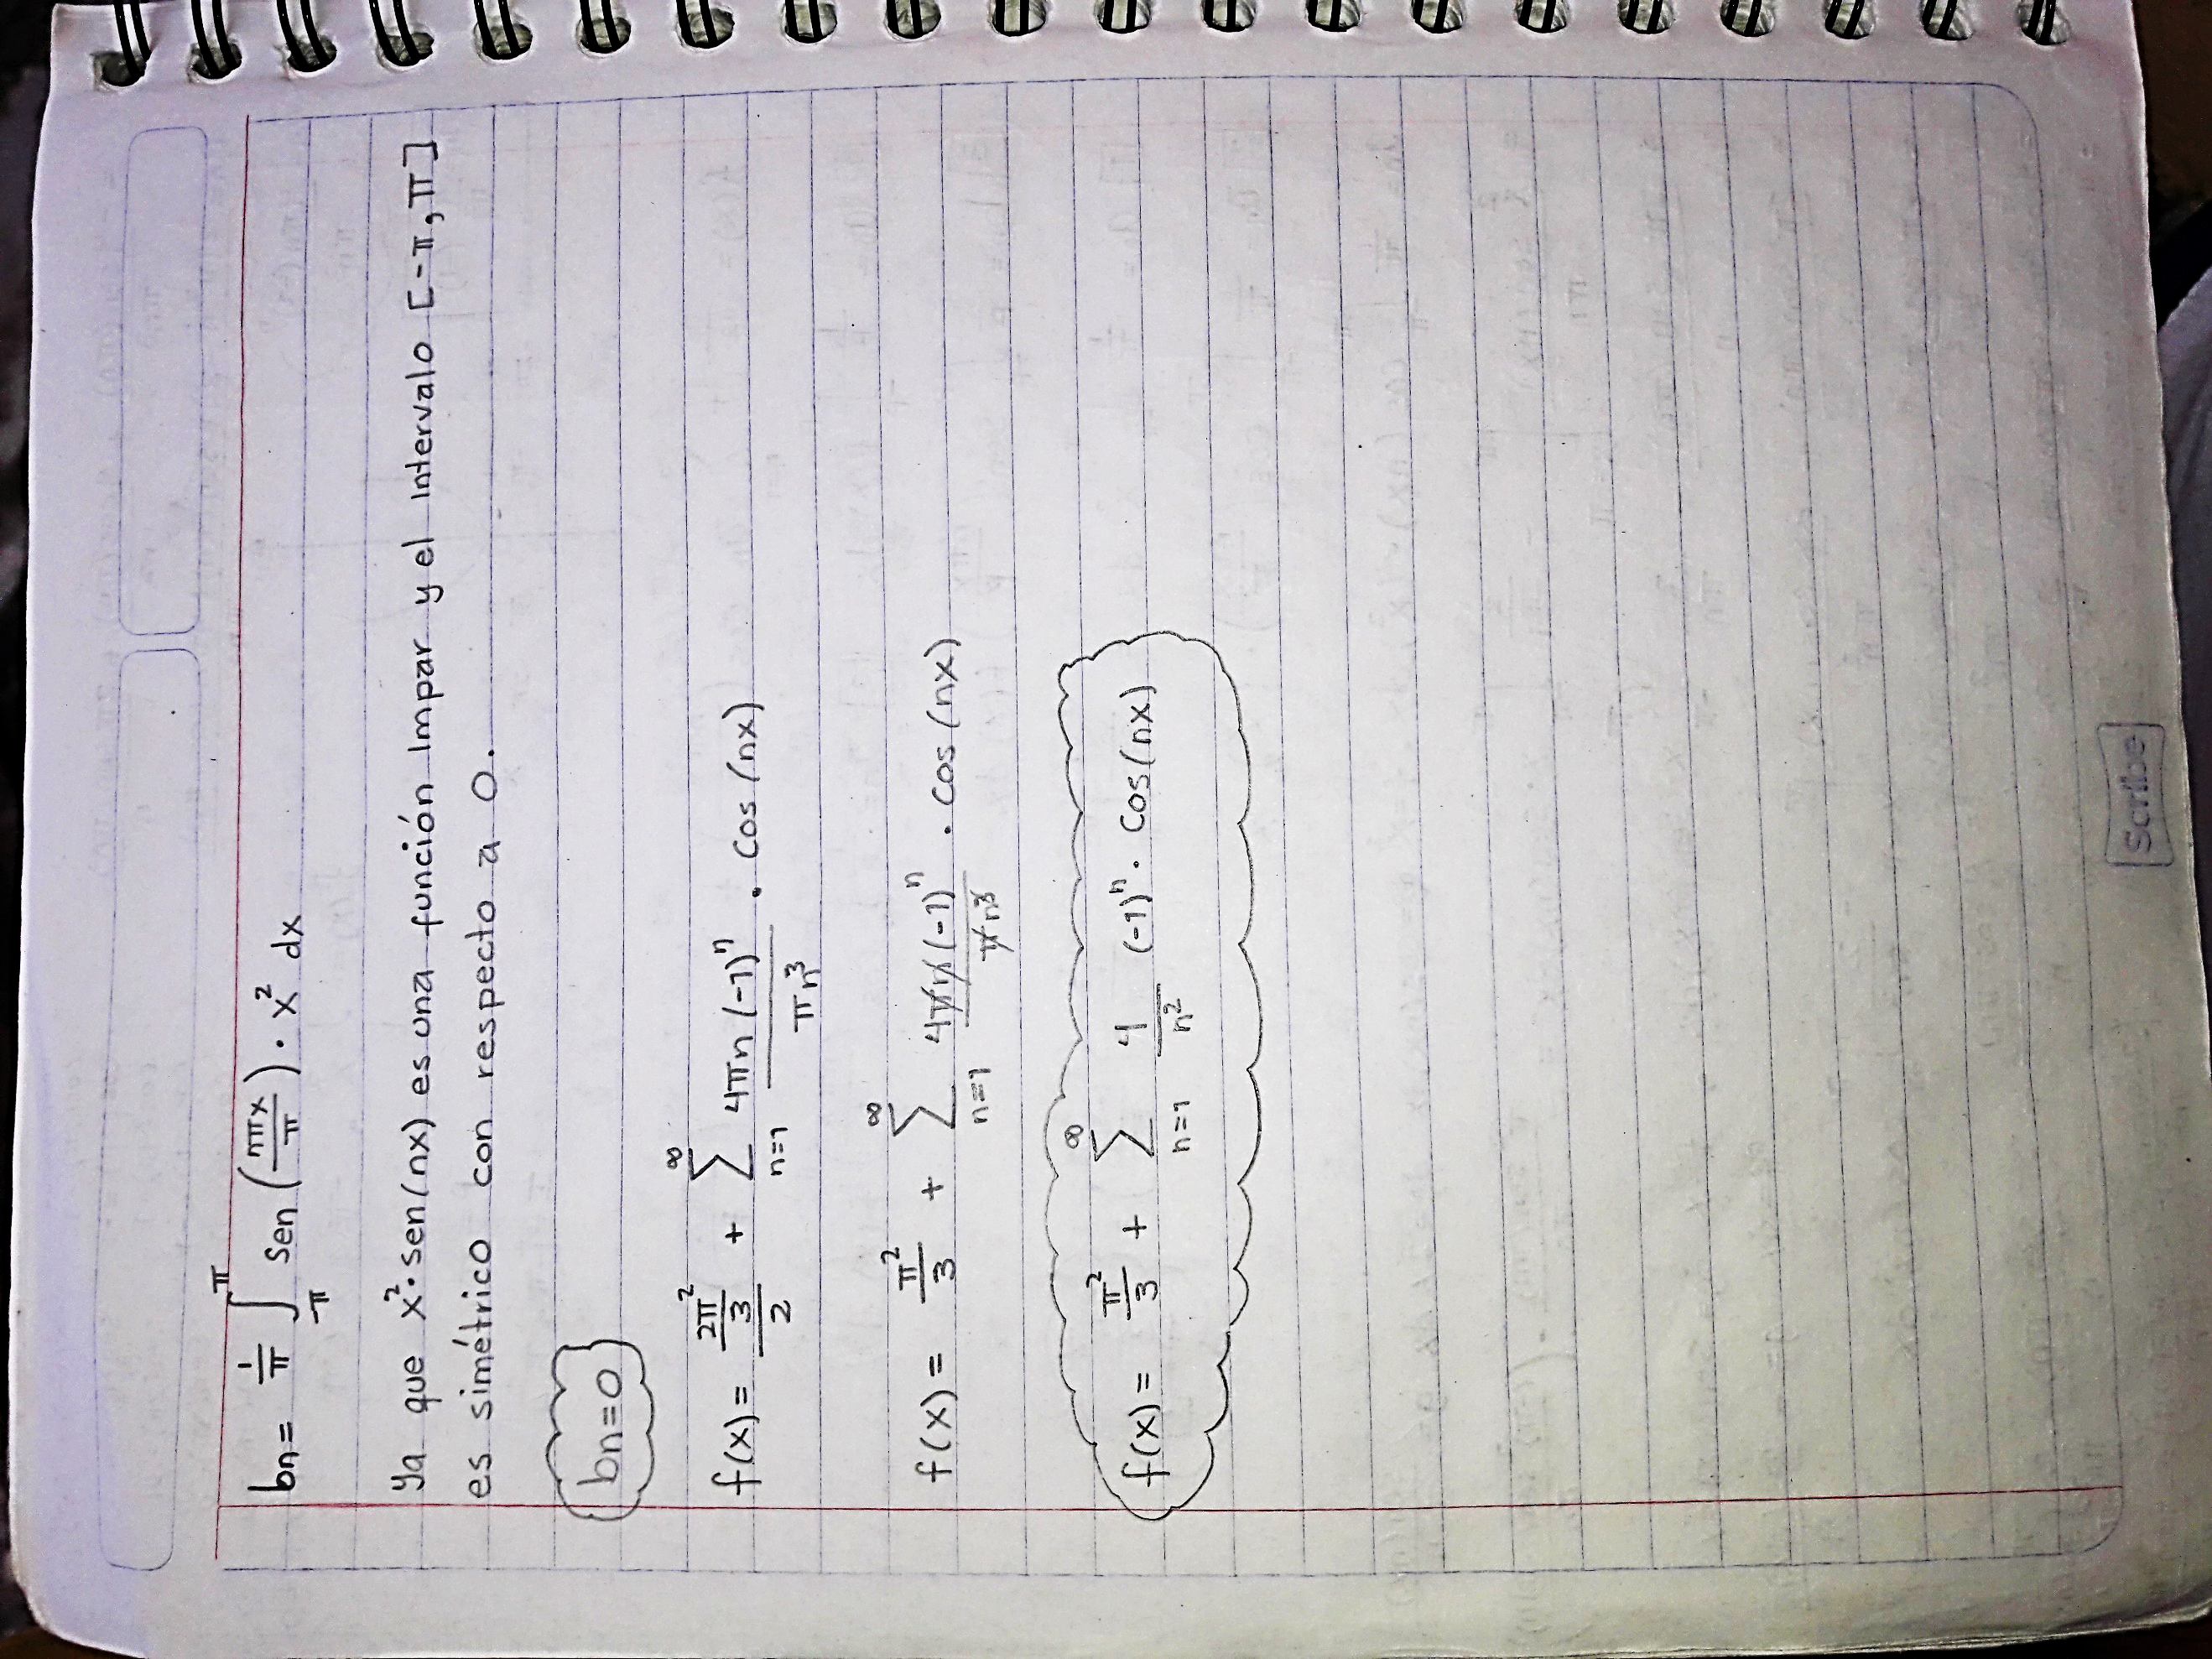 bn= 1/π ∫_{-π}^{π} Sen (nπx/π) · x² dx
Ya que x²·sen(nx) es una función impar y el intervalo [-π,π]
es simétrico con respecto a 0.
bn=0
f(x)= (2π²/3)/2 + ∑_{n=1}^{∞} 4πn(-1)ⁿ/πn³ · Cos(nx)
f(x)= π²/3 + ∑_{n=1}^{∞} 4πn(-1)ⁿ/πn³ · Cos(nx)
f(x)= π²/3 + ∑_{n=1}^{∞} 4/n² (-1)ⁿ · Cos(nx)
Scribe